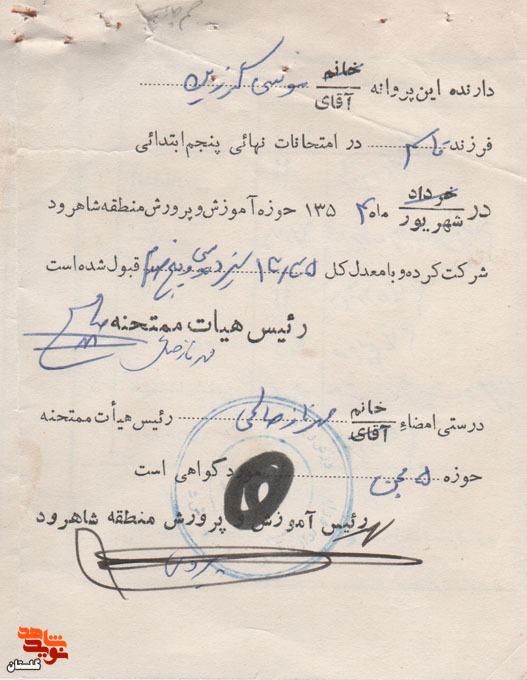 دارنده این پروانه خانم
آقای موسی
فرزند قاسم در امتحانات نهائی پنجم ابتدائی
در خرداد
شهریور ماه ۱۳۵۴ حوزه آموزش و پرورش منطقه شاهرود
شرکت کرده و با معدل کل قبول شده است
رئیس هیأت ممتحنه
مهرناز صالحی
درستی امضاء خانم
آقای مهرناز صالحی رئیس هیأت ممتحنه
حوزه مورد گواهی است
رئیس آموزش و پرورش منطقه شاهرود
نوید شاهد
گلستان